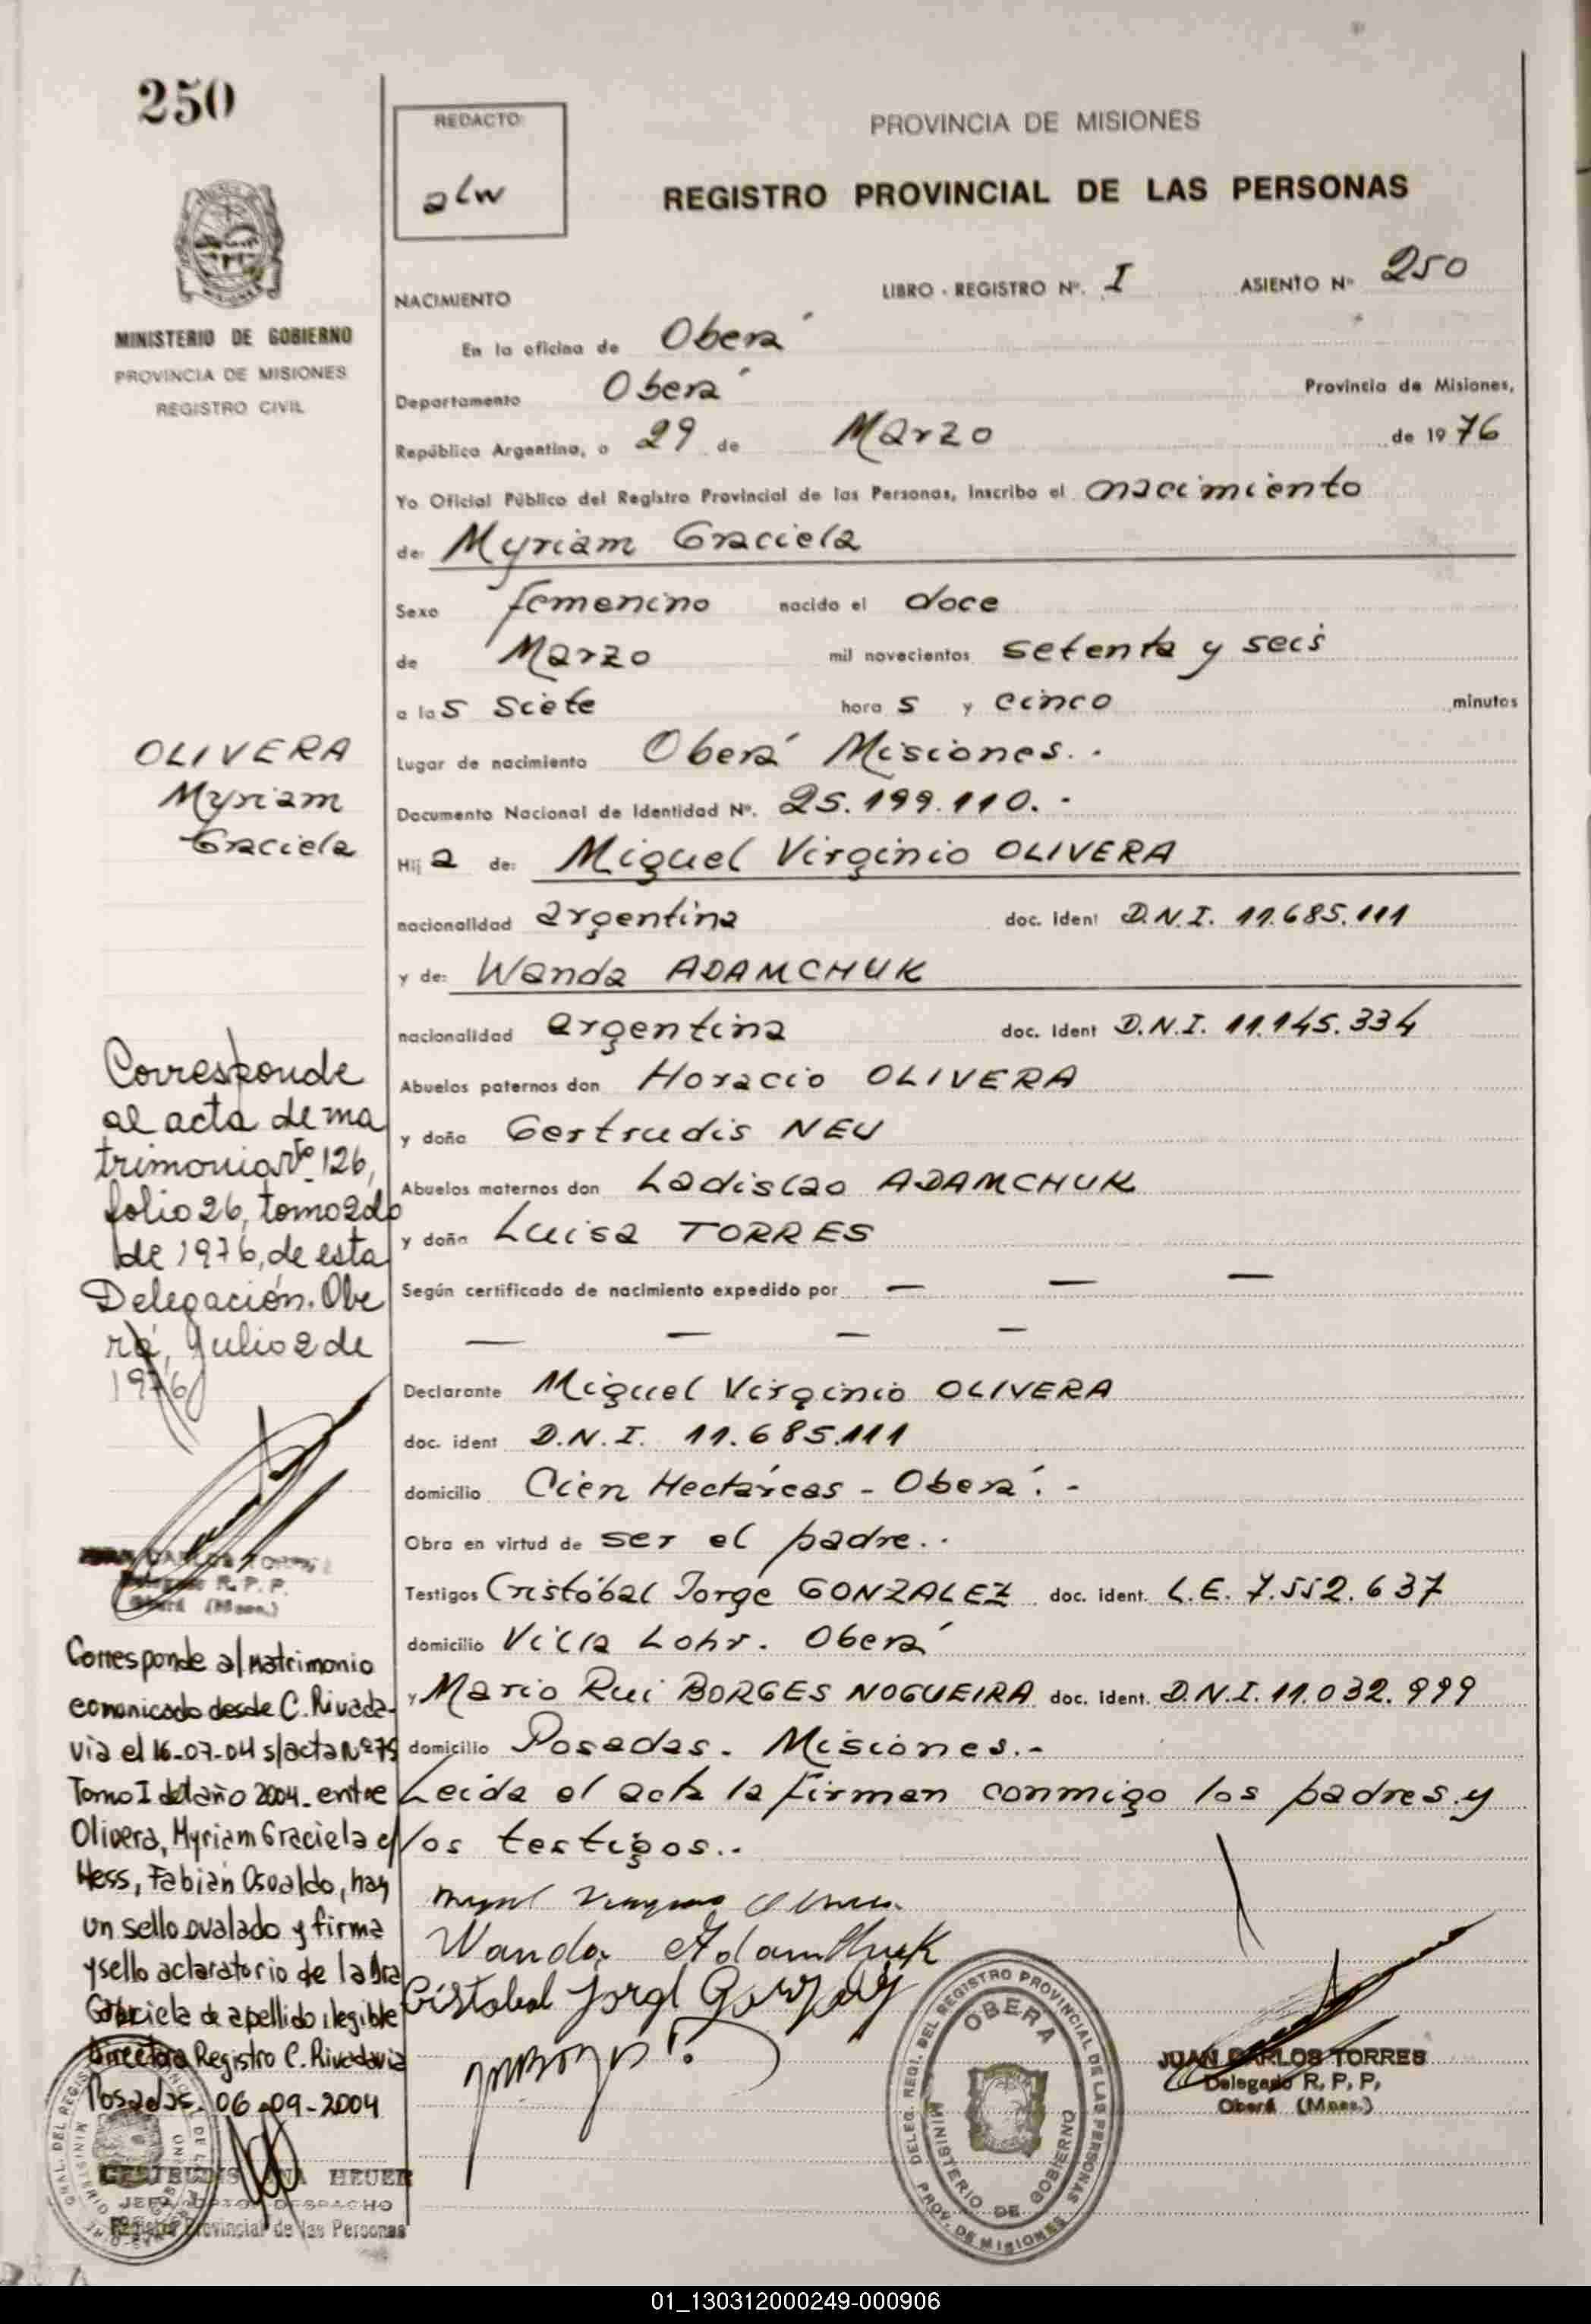 250
MINISTERIO DE GOBIERNO
PROVINCIA DE MISIONES
REGISTRO CIVIL
REDACTO
alw
PROVINCIA DE MISIONES
REGISTRO PROVINCIAL DE LAS PERSONAS
NACIMIENTO LIBRO - REGISTRO Nº. I ASIENTO Nº 250
En la oficina de Oberá
Departamento Oberá Provincia de Misiones,
República Argentina, a 29 de Marzo de 1976
Yo Oficial Público del Registro Provincial de las Personas, inscribo el nacimiento
de: Myriam Graciela
Sexo femenino nacido el doce
de Marzo mil novecientos setenta y seis
a las siete horas y cinco minutos
Lugar de nacimiento Oberá Misiones.-
Documento Nacional de Identidad Nº. 25.199.110.-
Hija de: Miguel Virginio OLIVERA
nacionalidad argentina doc. ident D.N.I. 11.685.111
y de: Wanda ADAMCHUK
nacionalidad argentina doc. ident D.N.I. 11.145.334
Abuelos paternos don Horacio OLIVERA
y doña Gertrudis NEU
Abuelos maternos don Ladislao ADAMCHUK
y doña Luisa TORRES
Según certificado de nacimiento expedido por — — —
— — — —
Declarante Miguel Virginio OLIVERA
doc. ident D.N.I. 11.685.111
domicilio Cien Hectáreas - Oberá.-
Obra en virtud de ser el padre.-
Testigos Cristóbal Jorge GONZALEZ doc. ident. L.E. 7.552.637
domicilio Villa Lohr. Oberá
y Mario Rui BORGES NOGUEIRA doc. ident. D.N.I. 11.032.999
domicilio Posadas. Misiones.-
Leida el acta la firman conmigo los padres y
los testigos.-
Wanda Adamchuk
Cristobal Jorge Gonzalez
OLIVERA
Myriam
Graciela
Corresponde
al acta de ma
trimonio Nº 126,
folio 26, tomo 2do
de 1976, de esta
Delegación. Obe
rá, Julio 2 de
1976
JUAN CARLOS TORRES
Delegado R. P. P.
Oberá (Mnes.)
Corresponde al matrimonio
comunicado desde C. Rivada-
via el 16-07-04 s/acta Nº 75
Tomo I del año 2004. entre
Olivera, Myriam Graciela c/
Hess, Fabián Osvaldo, hay
un sello ovalado y firma
y sello aclaratorio de la Dra
Gabriela de apellido ilegible
Directora Registro C. Rivadavia
Posadas. 06-09-2004
HEUER
JEFA DPTO. DESPACHO
Registro Provincial de las Personas
DELEG. REGI. DEL REGISTRO PROVINCIAL DE LAS PERSONAS
OBERA
MINISTERIO DE GOBIERNO
PROV. DE MISIONES
JUAN CARLOS TORRES
Delegado R. P. P.
Oberá (Mnes.)
01_130312000249-000906